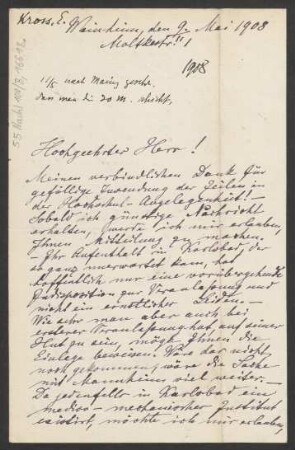 Kross, E.
Weinheim, den 9. Mai 1908
Moltkestr. 11
1908
11/5 nach Mainz geschr.
das man die 20 M. schickt,
Hochgeehrter Herr!
Meinen verbindlichen Dank für
gefällige Zusendung der Zeilen in
der Hochschul-Angelegenheit! –
Sobald ich günstige Nachricht
erhalten, werde ich mir erlauben,
Ihnen Mitteilung zu machen.
– Ihr Aufenthalt in Karlsbad, der
so ganz unerwartet kam, hat
hoffentlich nur eine vorübergehende
Indisposition zur Veranlassung und
nicht ein ernstliches Leiden. –
Wie sehr man aber auch bei
ersterer Veranlassung hat, auf seiner
Hut zu sein, möge Ihnen die
Einlage beweisen. Wäre das nicht
noch gekommen, wäre die Sache
mit Mannheim viel weiter. –
Da jedenfalls in Karlsbad ein
medico-mechanisches Institut
existirt, möchte ich mir erlauben,